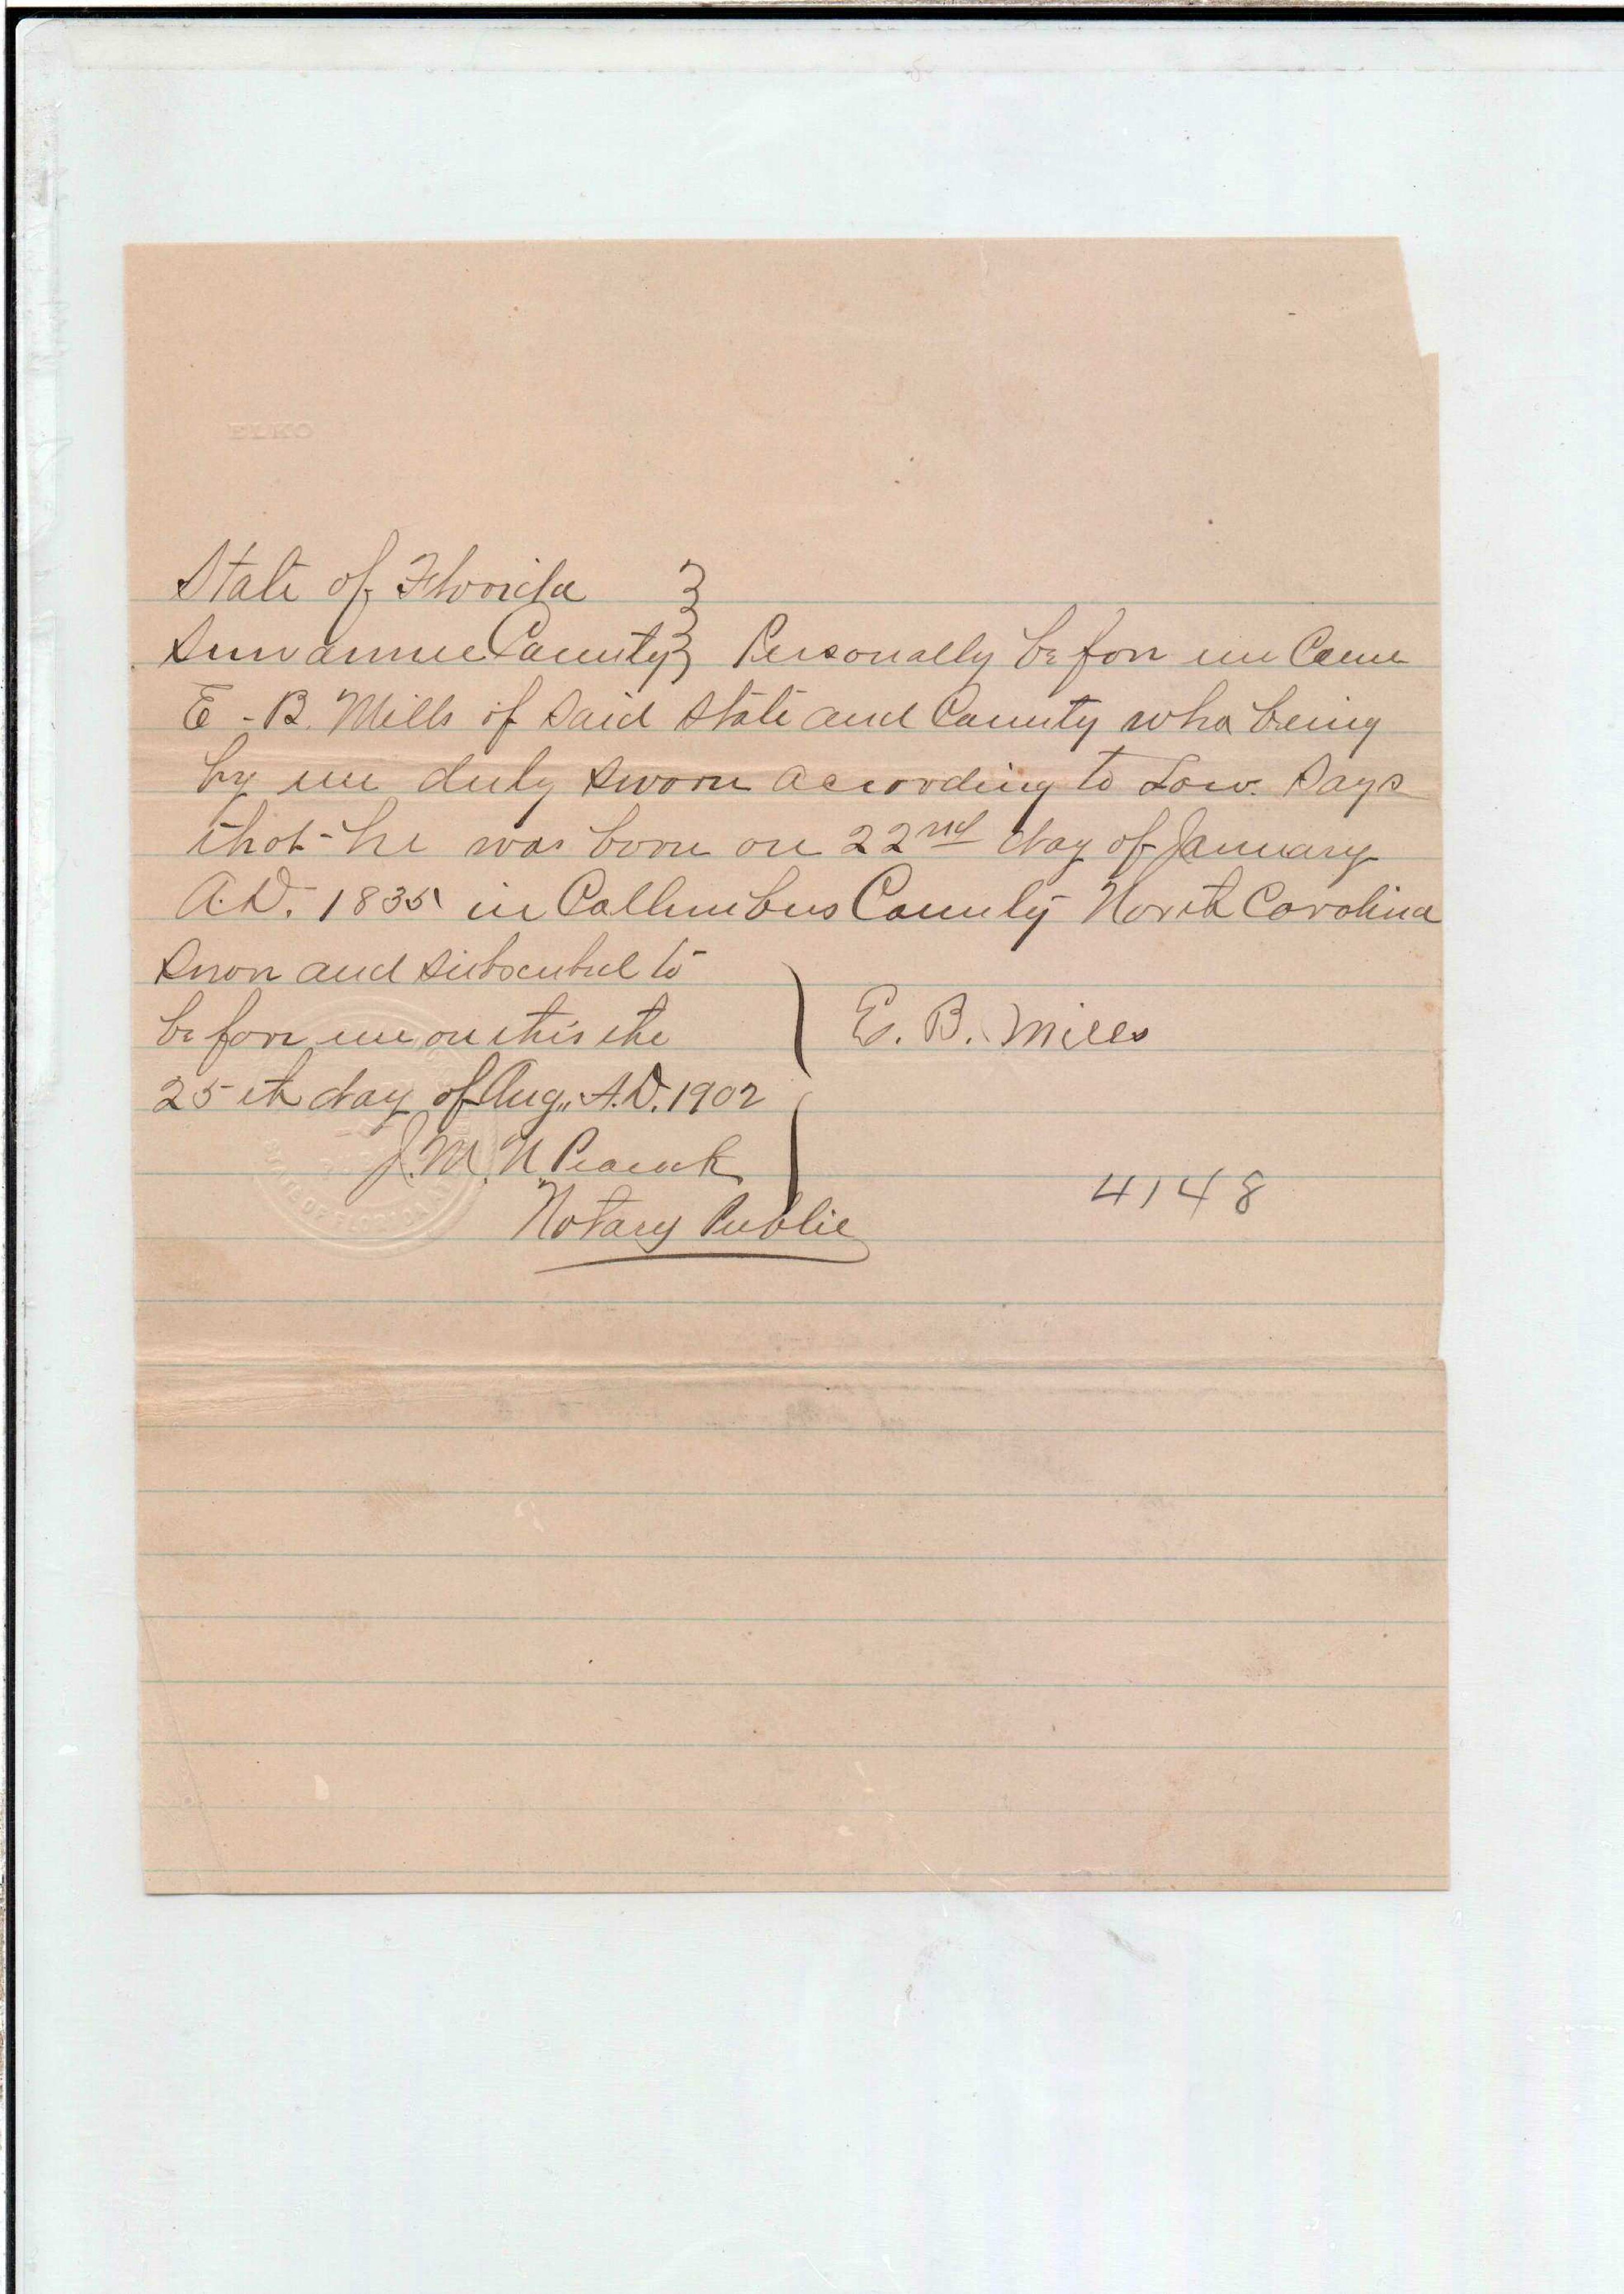 ELKO
State of Florida }
Suwannee County } Personally before me Came
E. B. Mills of Said State and County who being
by me duly sworn according to Law. Says
that he was born on 22nd day of January
A.D. 1835 in Collumbus County North Carolina
Sworn and subscribed to
before me on this the
E. B. Mills
25th day of Aug., A.D. 1902
J. M. N. Peacock
4148
Notary Public